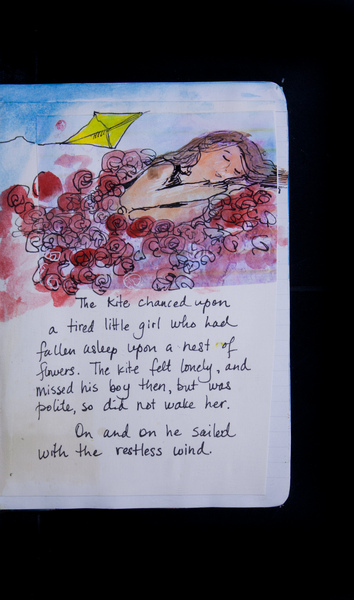 The kite chanced upon
a tired little girl who had
fallen asleep upon a nest of
flowers. The kite felt lonely, and
missed his boy then, but was
polite, so did not wake her.
On and on he sailed
with the restless wind.